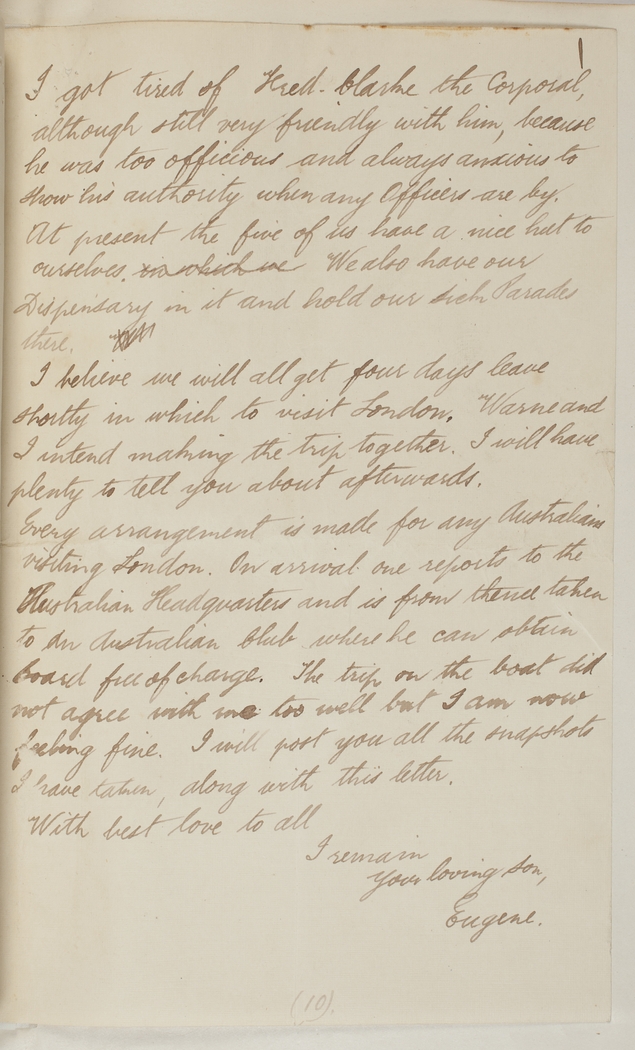 I got tired of Fred. Clarke the Corporal,
although still very friendly with him, because
he was too officious and always anxious to
show his authority when any Officers are by.
At present the five of us have a nice hut to
ourselves. in which we We also have our
Dispensary in it and hold our sick Parades
there.
I believe we will all get four days leave
shortly in which to visit London. Warne and
I intend making the trip together. I will have
plenty to tell you about afterwards.
Every arrangement is made for any Australians
visiting London. On arrival one reports to the
Australian Headquarters and is from thence taken
to an Australian Club where he can obtain
Board free of charge. The trip on the boat did
not agree with me too well but I am now
feeling fine. I will post you all the snapshots
I have taken, along with this letter.
With best love to all
I remain
Your loving son,
Eugene.
(10).